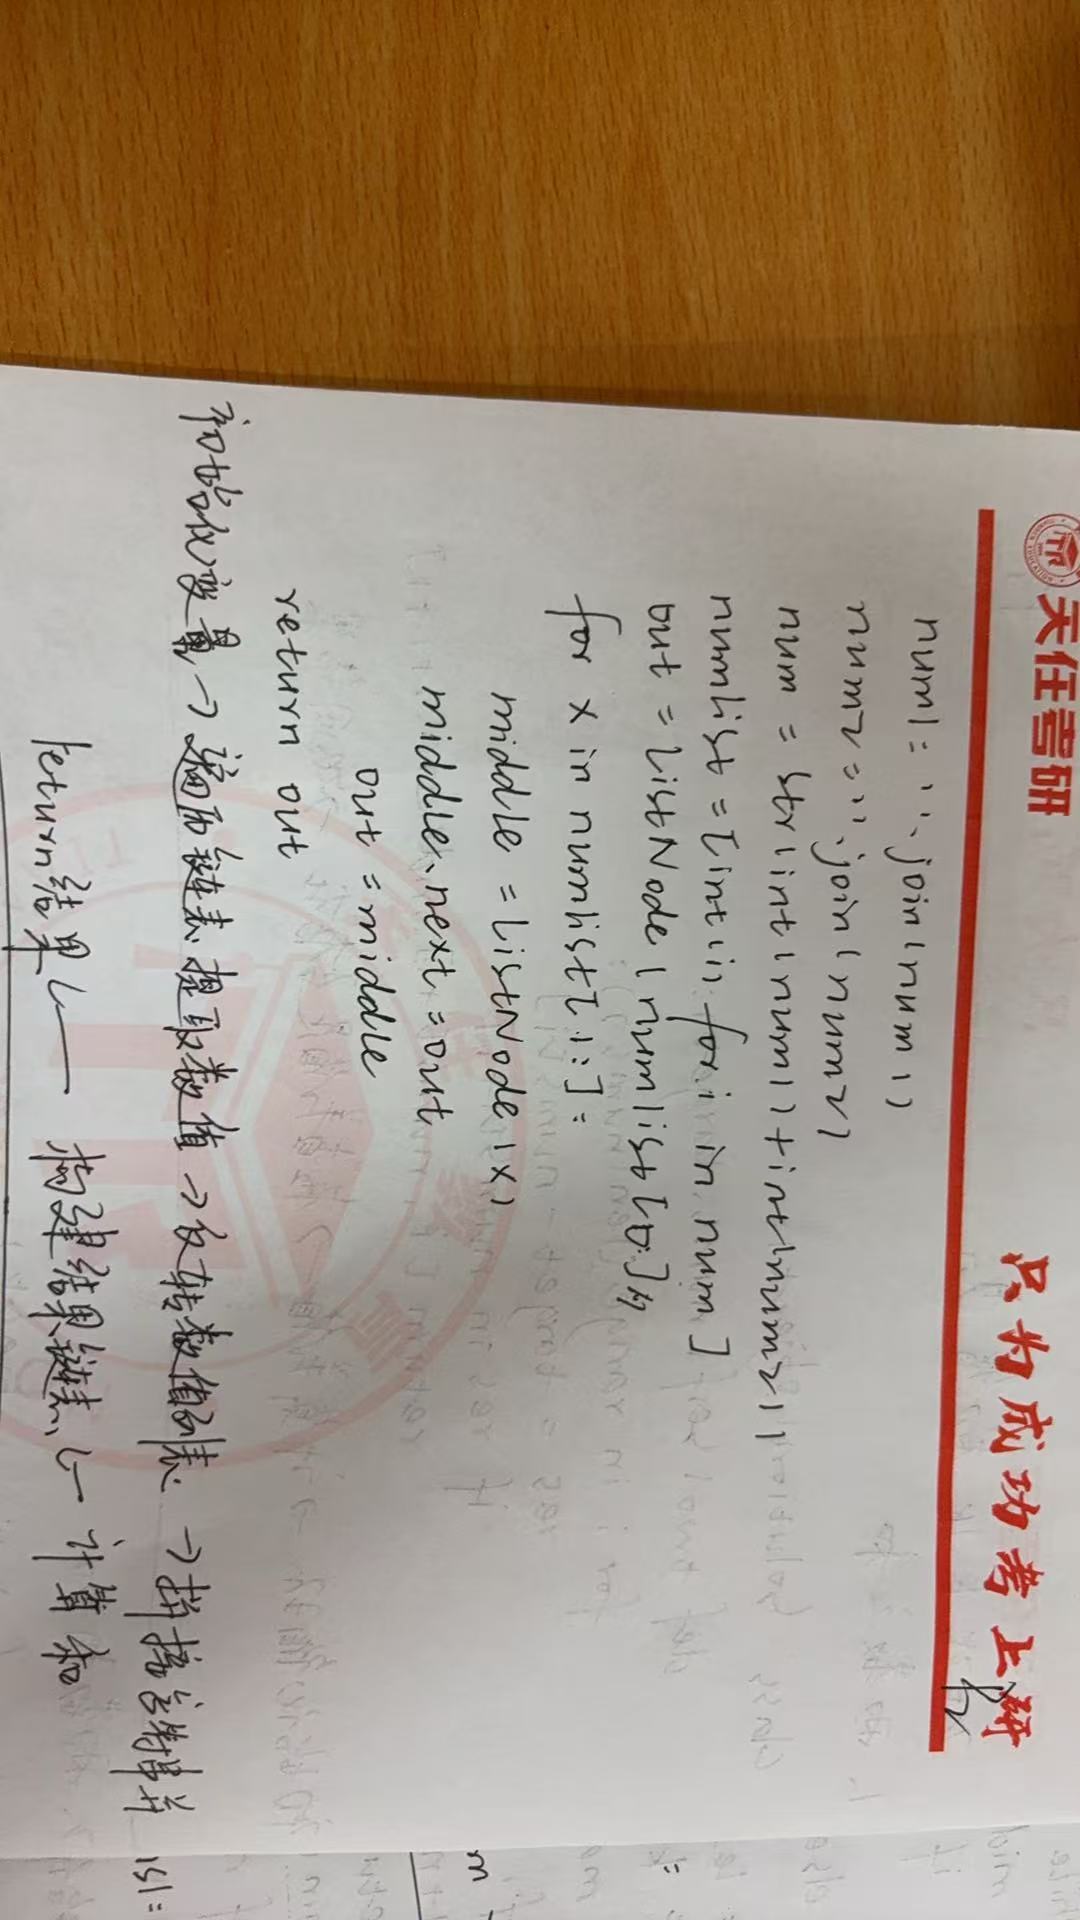 天任考研
只为成功考上研
num1 = ''.join(num1)
num2 = ''.join(num2)
num = str(int(num1)+int(num2))
numlist = [int(i) for i in num]
out = ListNode(numlist[0])
for x in numlist[1:]:
middle = ListNode(x)
middle.next = out
out = middle
return out
初始化变量→遍历链表提取数值→反转数值列表→拼接字符串并
return结果← 构建结果链表← 计算和